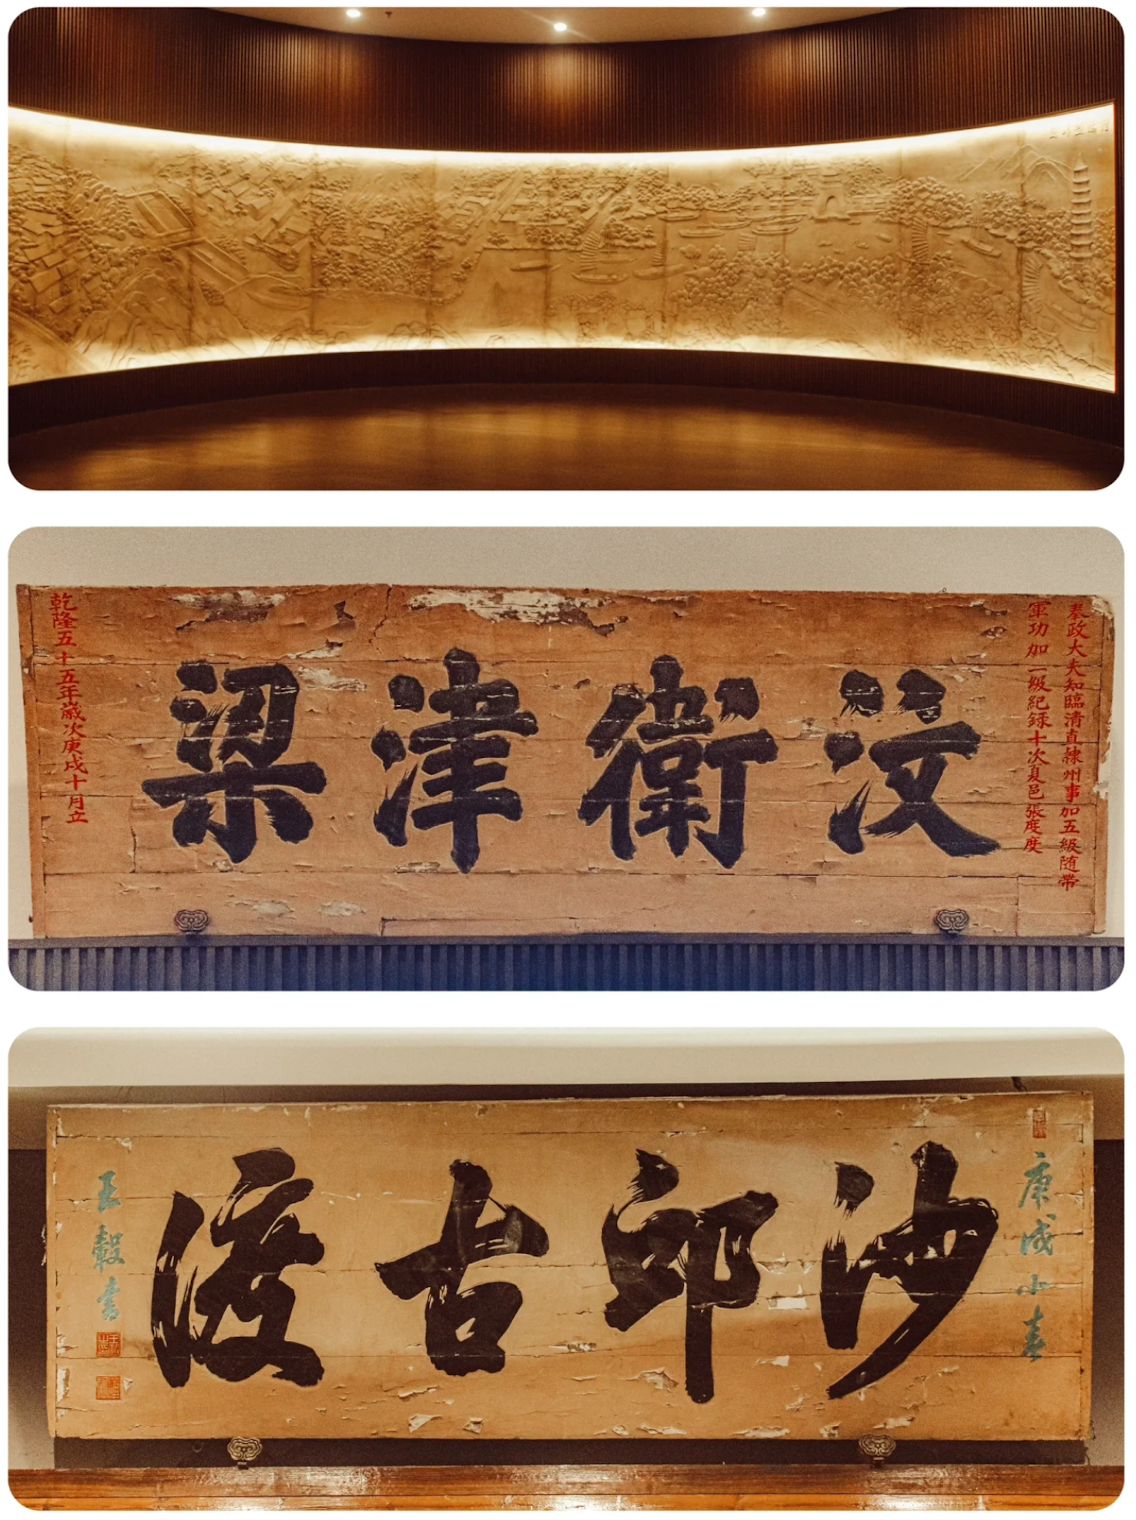 奉政大夫知臨清直隸州事加五級随帶
軍功加一級紀録十次夏邑張度度
汶衛津梁
乾隆五十五年歲次庚戌十月立
庚戌小春
沙邱古渡
王轂書